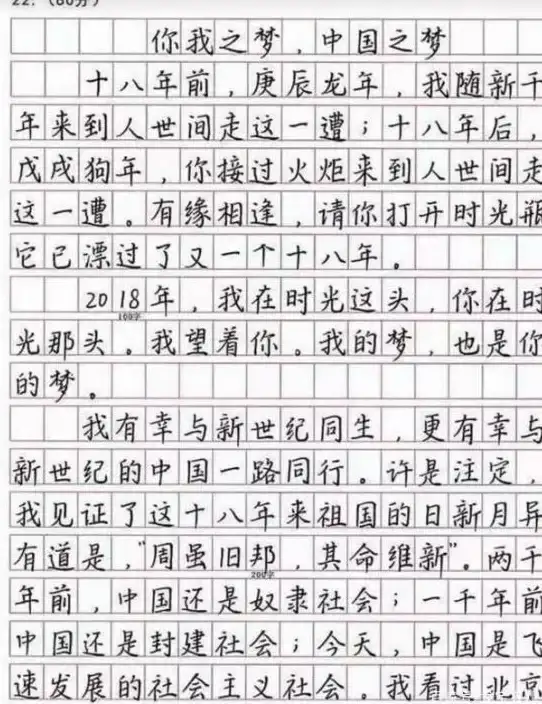 22.（60分）
你我之梦，中国之梦
十八年前，庚辰龙年，我随新千
年来到人世间走这一遭；十八年后，
戊戌狗年，你接过火炬来到人世间走
这一遭。有缘相逢，请你打开时光瓶
它已漂过了又一个十八年。
2018年，我在时光这头，你在时
100字
光那头。我望着你。我的梦，也是你
的梦。
我有幸与新世纪同生，更有幸与
新世纪的中国一路同行。许是注定，
我见证了这十八年来祖国的日新月异
有道是，“周虽旧邦，其命维新”。两千
200字
年前，中国还是奴隶社会；一千年前
中国还是封建社会；今天，中国是飞
速发展的社会主义社会。我看过北京